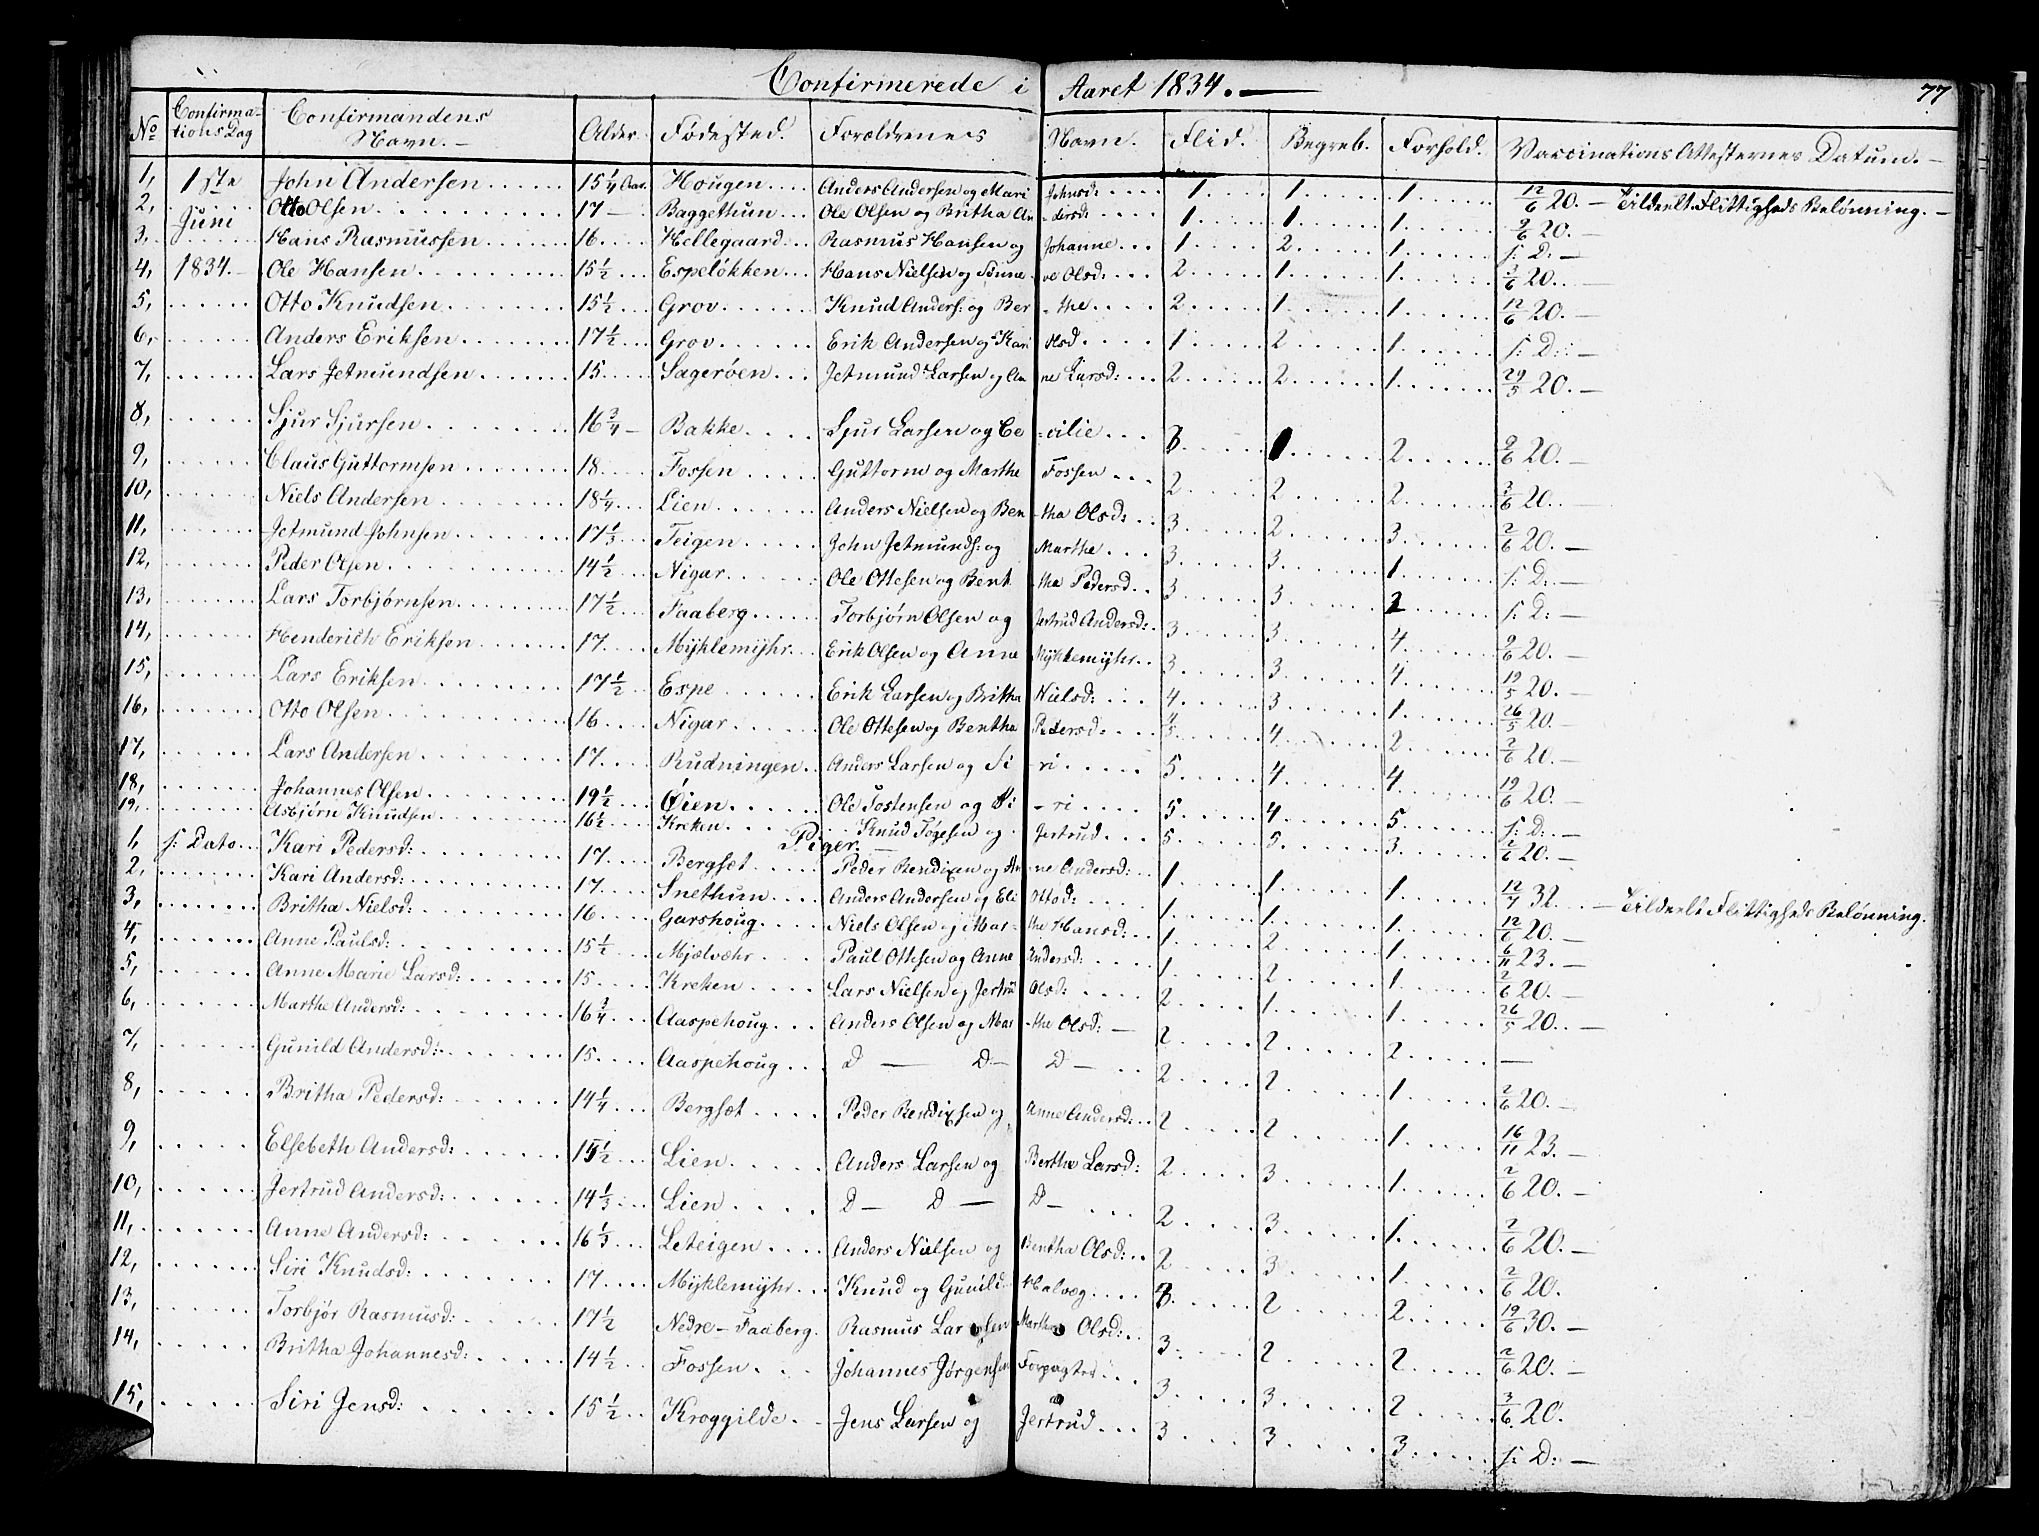 Confirmerede i Aaret 1834. — 77
No Confirmations Dag Confirmandens Navn. — Alder. Fødested. Forældrenes Navn. Flid. Begreb. Forhold. Vaccinations Attesternes Datum. —
1, 1ste John Andersen 15 1/4 Aar. Hougen Anders Andersen og Mari Johnsd: 1. 1. 1. 12/6 20. — Tildeelt Flittigheds Belønning. —
2, Juni Otto Olsen 17 — Baggethun Ole Olsen og Britha An-dersd: 1. 1. 1. 2/6 20. —
3, Hans Rasmussen 16. Hellegaard Rasmus Hansen og Johanne 1. 2. 1. s: D: —
4, 1834. — Ole Hansen 15 1/2 Espeløkken Hans Nielsen og Sinne-ve Olsd: 2. 1. 1. 2/6 20. —
5, Otto Knudsen 15 1/2 Grov Knud Anders: og Ber-the 2. 1. 1. 12/6 20. —
6, Anders Eriksen 17 1/2 Grov Erik Andersen og Kari Olsd 1. 2. 1. s: D: —
7, Lars Jetmundsen 15. Sagerøen Jetmund Larsen og An ne Larsd: 2. 2. 1. 29/5 20. —
8, Sjur Sjursen 16 3/4 — Bakke Sjur Larsen og Ce-cilie 2. 2/6 20. —
9, Claus Guttormsen 18. Fossen Guttorm og Marthe Fossen 2. 2. 2. 3/6 20. —
10, Niels Andersen 18 1/4 Lien Anders Nielsen og Ben-tha Olsd: 3. 2. 3. 2/6 20. —
11, Jetmund Johnsen 17 1/3 Teigen John Jetmunds: og Marthe 3. 3. 1. s: D: —
12, Peder Olsen 14 1/2 Nigar Ole Ottesen og Bent-ha Pedersd 3. 3. 2 s: D: —
13, Lars Torbjørnsen 17 1/2 Faaberg Torbjørn Olsen og Jertrud Andersd: 3. 3. 4. 2/6 20. —
14, Henderich Eriksen 17. Myklemyhr Erik Olsen og Anne Myklemyhr 3. 3. 4. 19/5 20. —
15, Lars Eriksen 17 1/2 Espe Erik Larsen og Britha Nielsd: 4. 3. 1. 26/5 20. —
16, Otto Olsen 16. Nigar Ole Ottesen og Bentha Pedersd: 4. 2. 2/6 20. —
17, Lars Andersen 17. Rudningen Anders Larsen og Si-ri 5. 4. 4. 19/6 20. —
18, Johannes Olsen 19 1/2 Øien Ole Tostensen og Si-ri 5. 4. 5. s: D: —
19, Asbjørn Knudsen 16 1/2 Kreken Knud Tøgesen og Jertrud 5. 5. 3. 2/6 20. —
Piger. —
1, s: Dato Kari Pedersd: 17. Bergset Peder Bendixen og An-ne Andersd: 1. 1. 1. 12/7 32. — Tildeelt Flittigheds Belønning.
2, Kari Andersd: 17. Snethun Anders Andersen og Eli Ottod: 1. 1. 1. 12/6 20. —
3, Britha Nielsd: 16. Garshoug Niels Olsen og Mar-the Hansd: 1. 2. 1. 6/11 23. —
4, Anne Paulsd: 15 1/2 Mjelvæhr Paul Ottesen og Anne Andersd: 1. 2. 1. 2/6 20. —
5, Anne Marie Larsd: 15. Kreken Lars Nielsen og Jertru Olsd: 2. 1. 1. 26/5 20. —
6, Marthe Andersd: 16 3/4 Aaspehoug Anders Olsen og Mar-the Olsd: — 2. 2. 2. —
7, Gunild Andersd: 15. Aaspehoug D — D — D — 2. 2. 1. 2/6 20. —
8, Britha Pedersd: 14 1/4 Bergset Peder Bendixsen og Anne Andersd: 2. 2. 1. 16/11 23. —
9, Elsebeth Andersd: 15 1/2 Lien Anders Larsen og Berthe Larsd: 2. 3. 1. 2/6 20. —
10, Jertrud Andersd: 14 1/3 Lien D — D — D — 2. 3. 1. 2/6 20. —
11, Anne Andersd: 16 1/3 Leteigen Anders Nielsen og Bentha Olsd: 2. 3. 1. 2/6 20.
12, Siri Knudsd: 17. Myklemyhr Knud og Gunild Halvæg 2. 2. 19/6 30. —
13, Torbjør Rasmusd: 17 1/2 Nedre-Faaberg. Rasmus Larsen Marthe Olsd: 3. 2. 2. 2/6 20. —
14, Britha Johannesd: 14 1/2 Fossen Johannes Jørgensen Forpagter 3. 3. 2. 3/6 20.
15, Siri Jensd: 15 1/2 Kroggilde. — Jens Larsen og Jertrud 3. 3. 3. s: D: —